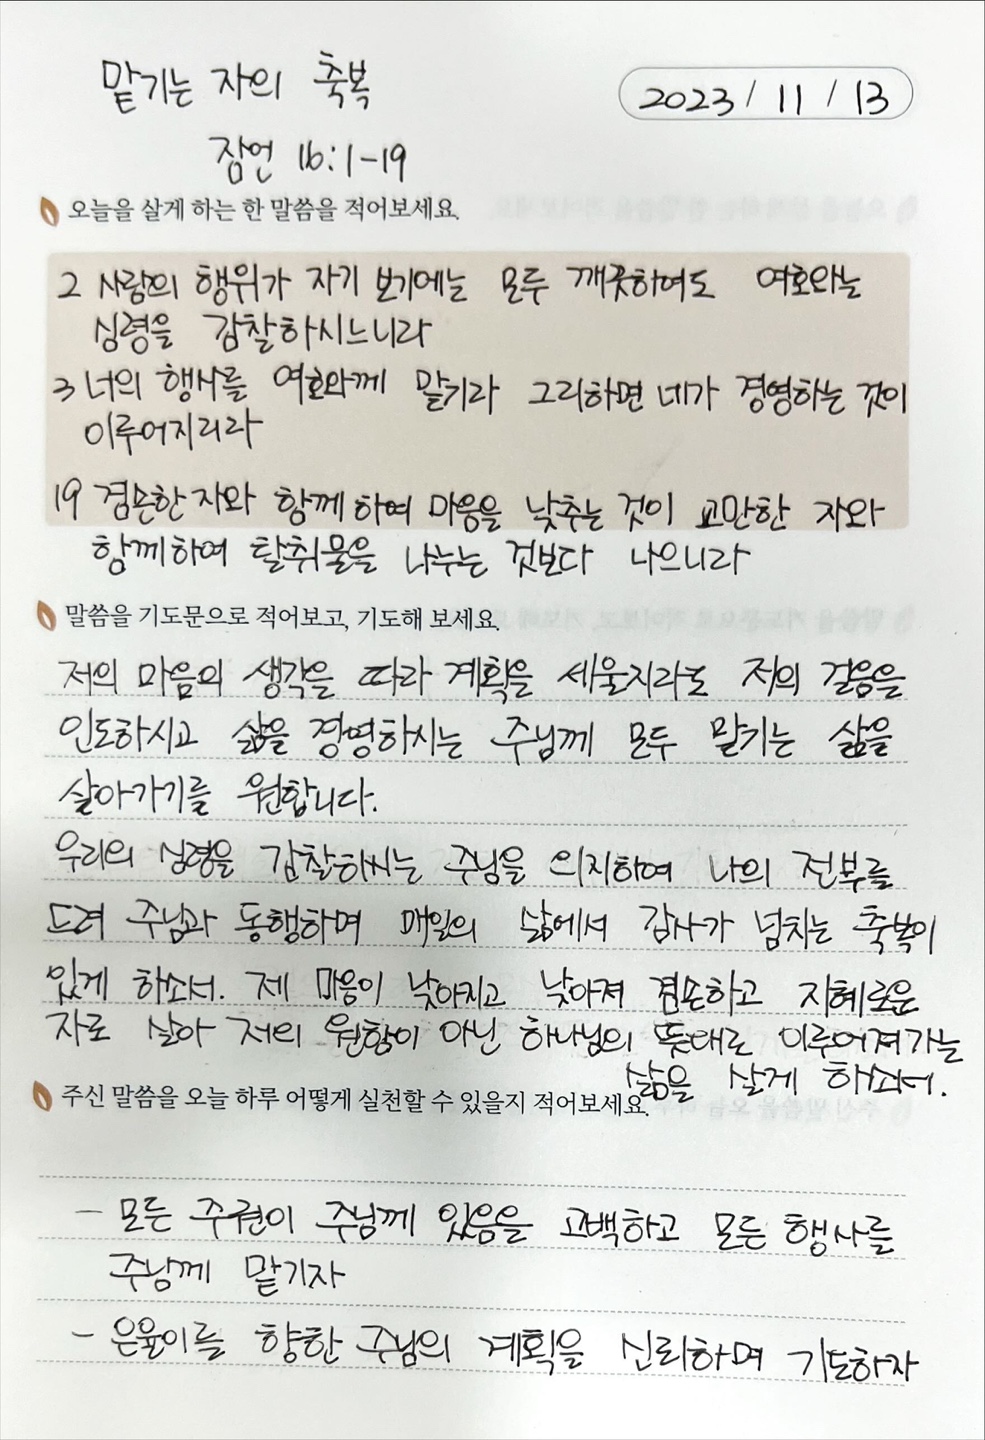 맡기는 자의 축복
2023 / 11 / 13
잠언 16:1-19
오늘을 살게 하는 한 말씀을 적어보세요.
2 사람의 행위가 자기 보기에는 모두 깨끗하여도 여호와는
심령을 감찰하시느니라
3 너의 행사를 여호와께 맡기라 그리하면 네가 경영하는 것이
이루어지리라
19 겸손한 자와 함께 하여 마음을 낮추는 것이 교만한 자와
함께하여 탈취물을 나누는 것보다 나으니라
말씀을 기도문으로 적어보고, 기도해 보세요.
저의 마음의 생각을 따라 계획을 세울지라도 저의 걸음을
인도하시고 삶을 경영하시는 주님께 모두 맡기는 삶을
살아가기를 원합니다.
우리의 심령을 감찰하시는 주님을 의지하여 나의 전부를
드려 주님과 동행하며 매일의 삶에서 감사가 넘치는 축복이
있게 하소서. 제 마음이 낮아지고 낮아져 겸손하고 지혜로운
자로 살아 저의 원함이 아닌 하나님의 뜻대로 이루어져가는
삶을 살게 하소서.
주신 말씀을 오늘 하루 어떻게 실천할 수 있을지 적어보세요.
- 모든 주권이 주님께 있음을 고백하고 모든 행사를
주님께 맡기자
- 은율이를 향한 주님의 계획을 신뢰하며 기도하자